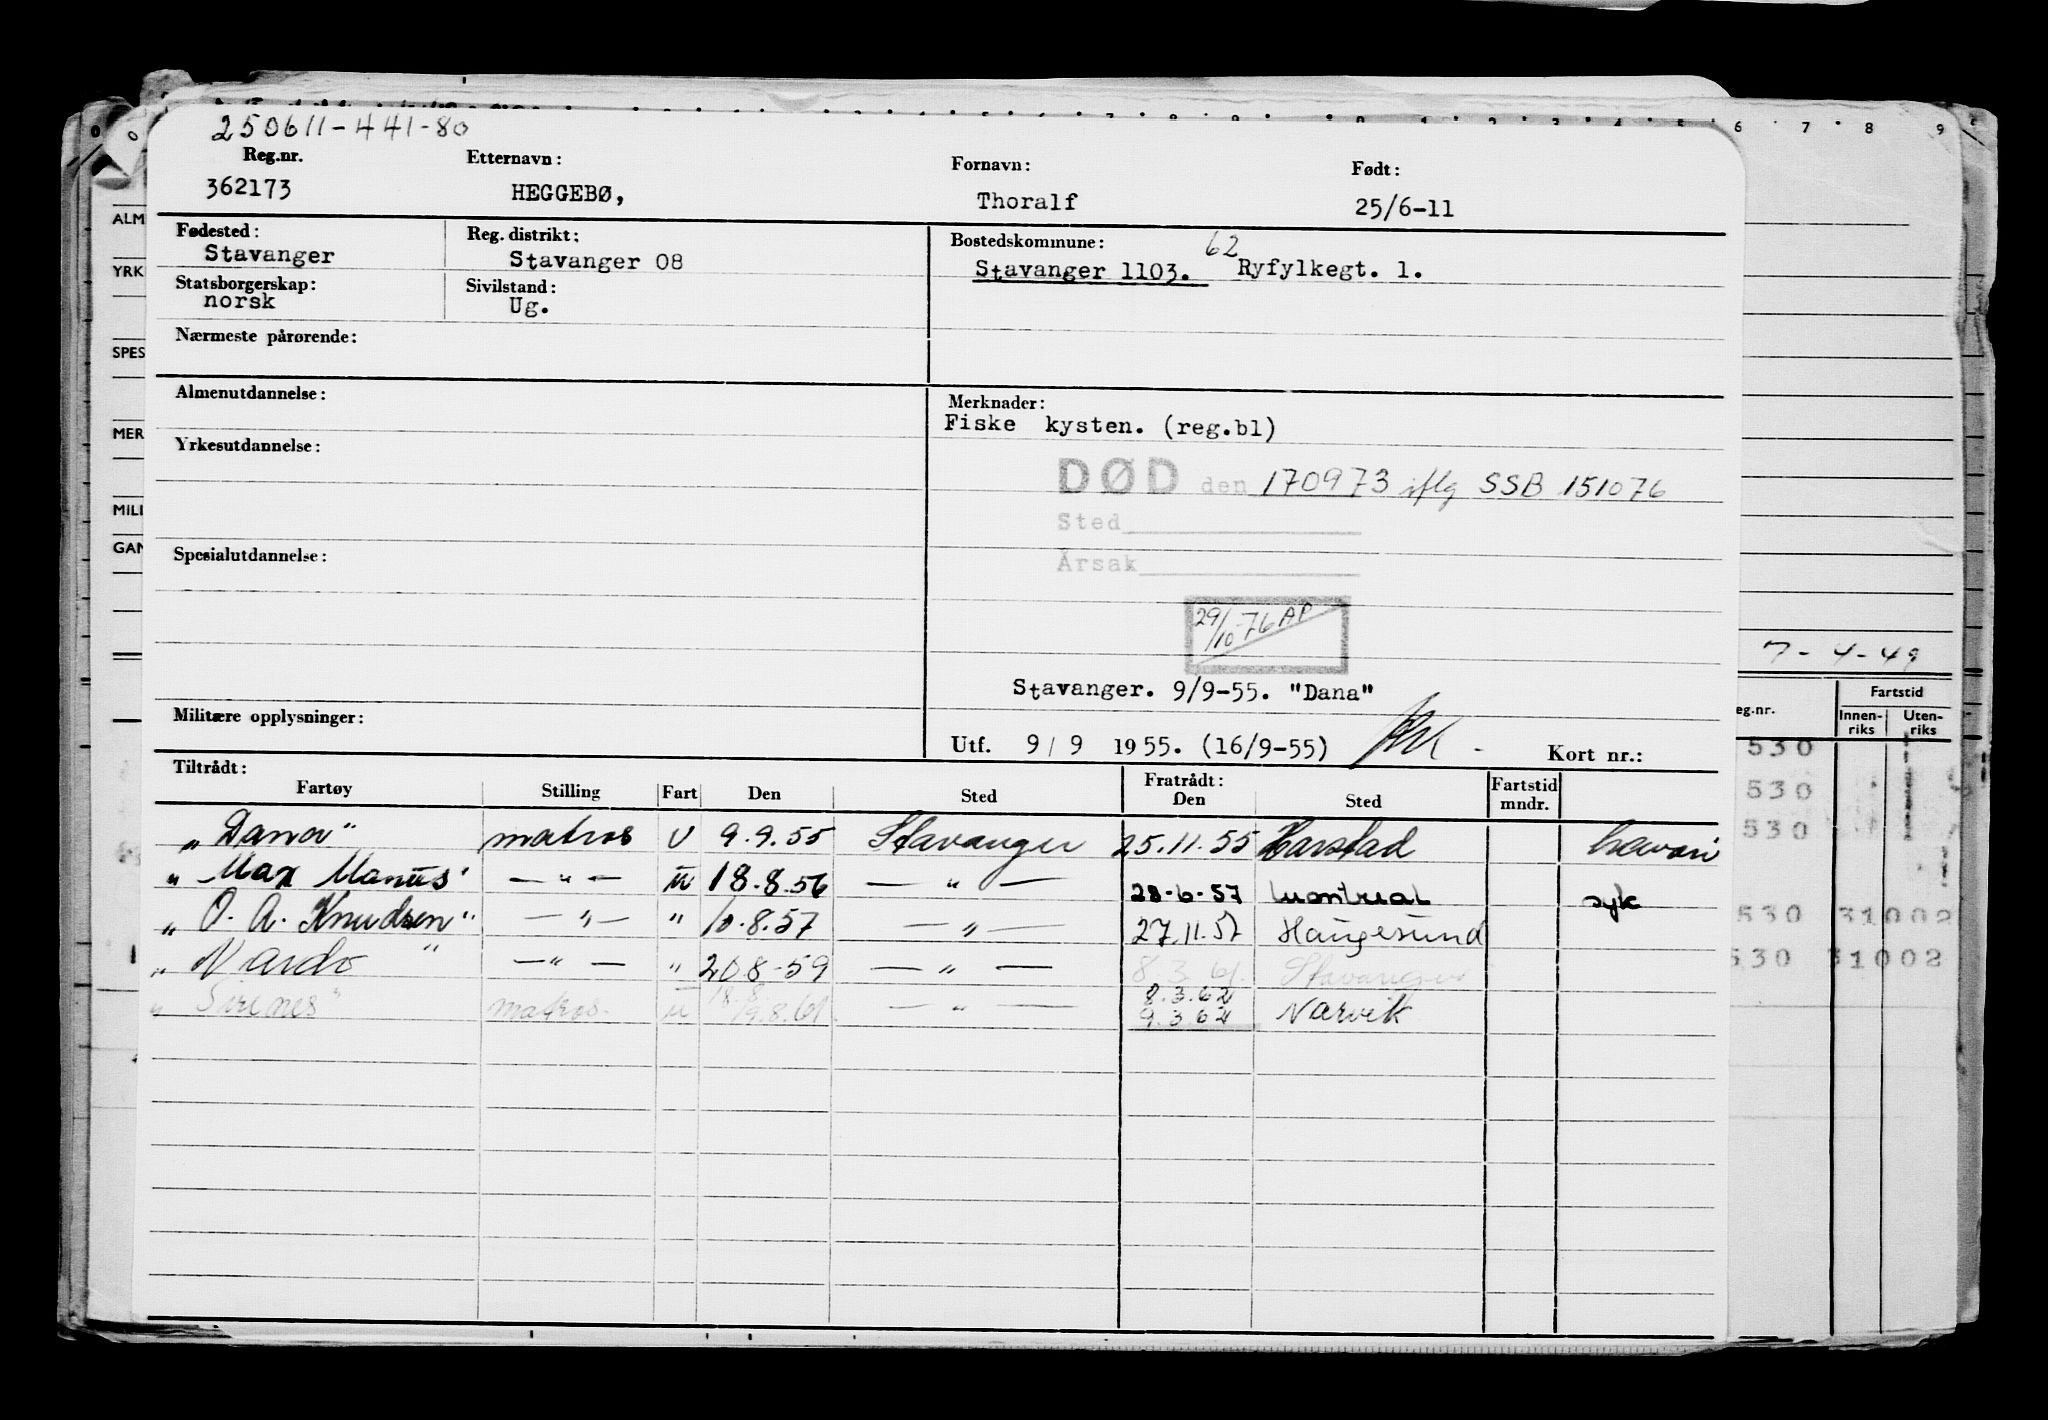 250611-441-80
Reg.nr. Etternavn: Fornavn: Født:
362173 HEGGEBØ, Thoralf 25/6-11
Fødested: Reg. distrikt: Bostedskommune:
Stavanger Stavanger 08 Stavanger 1103. 62 Ryfylkegt. 1.
Statsborgerskap: Sivilstand:
norsk Ug.
Nærmeste pårørende:
Almenutdannelse: Merknader:
Fiske kysten. (reg.bl)
Yrkesutdannelse:
DØD den 170973 iflg SSB 151076
Sted
Årsak
Spesialutdannelse:
29/10-76 AP
Stavanger. 9/9-55. "Dana"
Militære opplysninger:
Utf. 9/9 1955. (16/9-55) Kort nr.:
Tiltrådt: Fratrådt:
Fartøy Stilling Fart Den Sted Den Sted Fartstid mndr.
„Dana" matros U 9.9.55 Stavanger 25.11.55 Harstad havari
„Max Manus" — " — 18.8.56 — " — 28-6-57 Montreal syk
„O. A. Knudsen" — " — " 10.8.57 — " — 27.11.57 Haugesund
„Vardo" — " — " 20.8-59 — " — 8.3.61. Stavanger
„Sirenes" matros. 18.8 19.8.61. — " — 8.3.62 9.3.62 Narvik
ALM
YRK
SPES
MER
MILI
GAN
6 7 8 9
7-4-49
eg.nr. Fartstid
Innen-riks Uten-riks
530
530
530
530 31002
530 31002